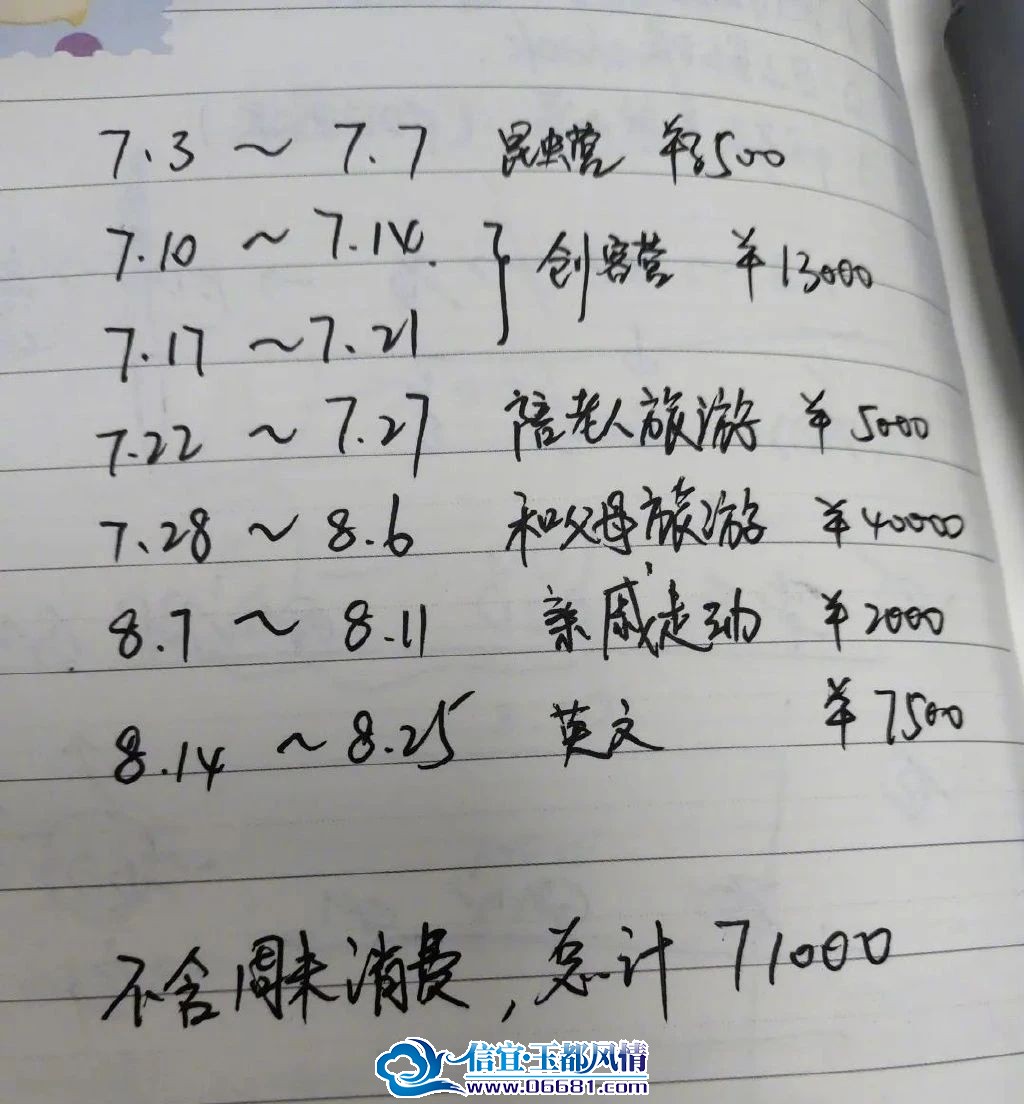 7.3 ~ 7.7 昆虫营 ¥3500
7.10 ~ 7.14. } 创客营 ¥13000
7.17 ~ 7.21
7.22 ~ 7.27 陪老人旅游 ¥5000
7.28 ~ 8.6 和父母旅游 ¥40000
8.7 ~ 8.11 亲戚走动 ¥2000
8.14 ~ 8.25 英文 ¥7500
不含周末消费，总计 71000
信宜·玉都风情
www.06681.com